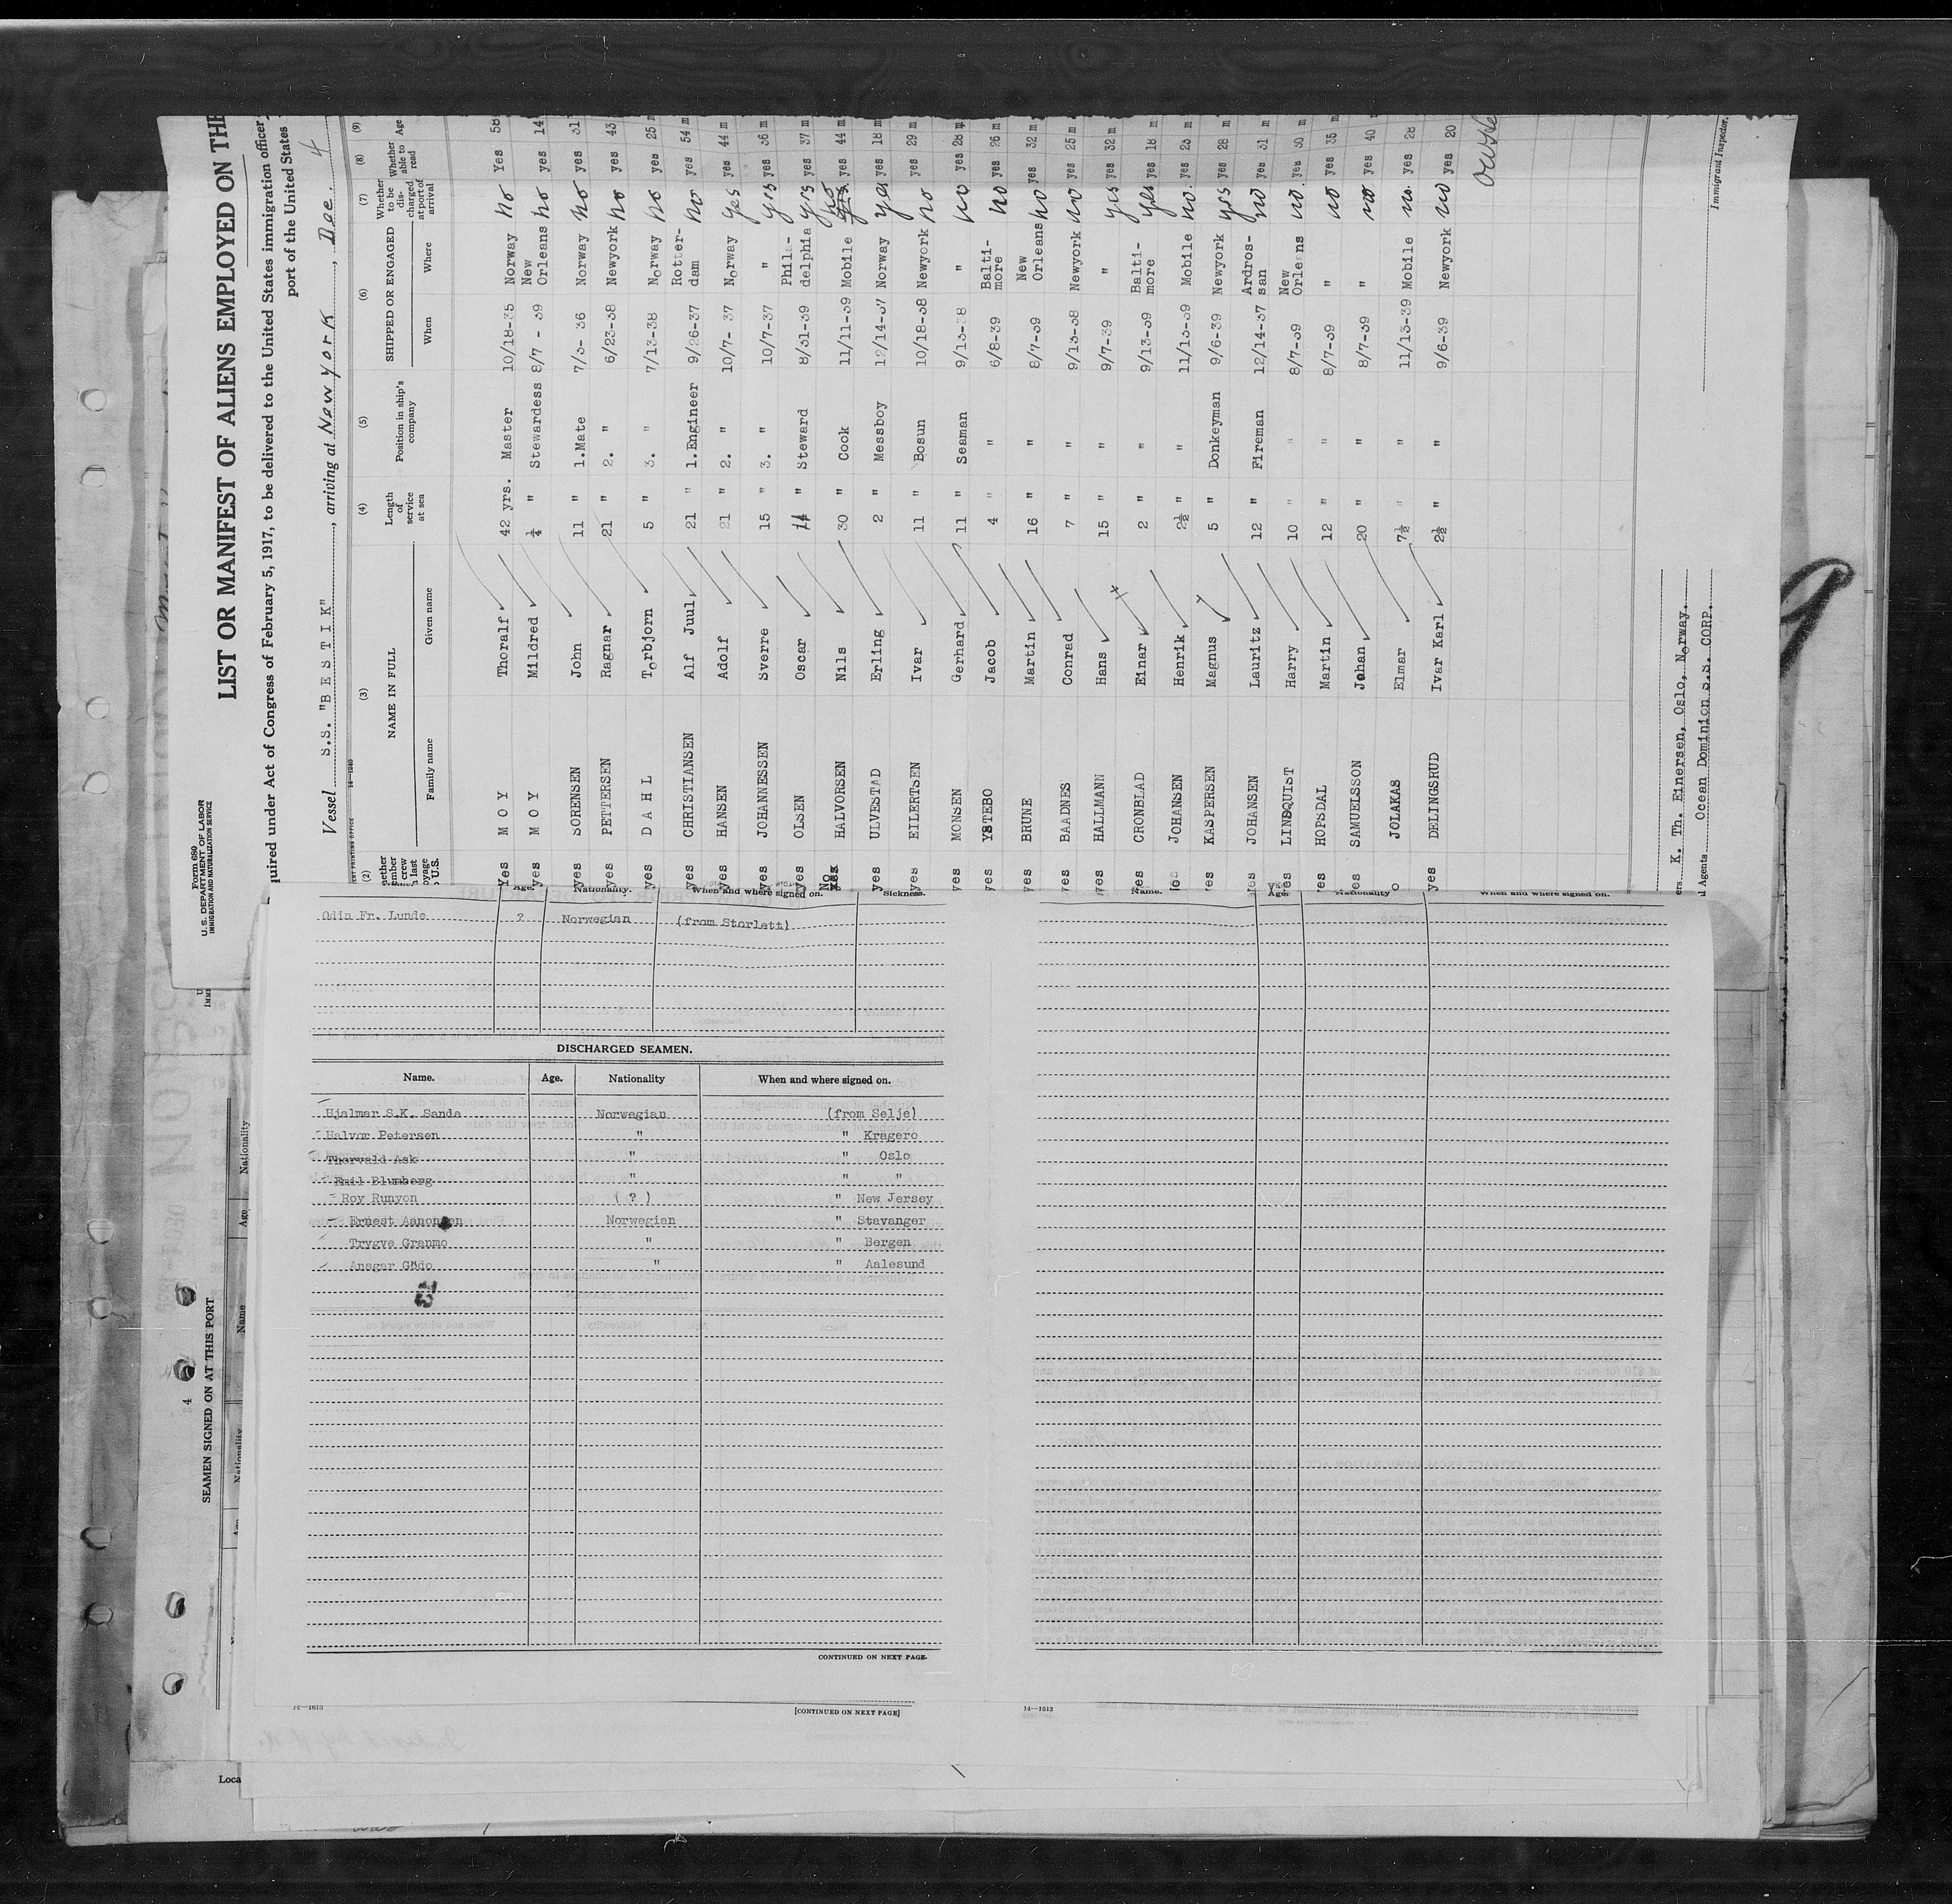 Form 680
U. S. DEPARTMENT OF LABOR
IMMIGRATION AND NATURALIZATION SERVICE
LIST OR MANIFEST OF ALIENS EMPLOYED ON THE
quired under Act of Congress of February 5, 1917, to be delivered to the United States immigration officer
port of the United States
Vessel S.S. "BESTIK", arriving at New York, Dec. 4
(2) (3) (4) (5) (6) (7) (8) (9)
NAME IN FULL
Family name Given name
Length of service at sea
Position in ship's company
SHIPPED OR ENGAGED
When Where
Whether to be discharged at port of arrival
Whether able to read
Age
Yes MOY Thoralf 42 yrs. Master 10/18-35 Norway no Yes 58
yes MOY Mildred ¼ " Stewardess 8/7 - 39 New Orleans no yes 14
yes SORENSEN John 11 " 1.Mate 7/3- 36 Norway no yes 31
yes PETTERSEN Ragnar 21 " 2. " 6/23-38 Newyork no yes 43
yes DAHL Torbjorn 5 " 3. " 7/13-38 Norway no yes 25 m
yes CHRISTIANSEN Alf Juul 21 " 1.Engineer 9/26-37 Rotter-dam no yes 54 m
yes HANSEN Adolf 21 " 2. " 10/7- 37 Norway yes yes 44 m
yes JOHANNESSEN Sverre 15 " 3. " 10/7-37 " yes yes 36 m
yes OLSEN Oscar 14 " Steward 8/31-39 Phila-delphia yes yes 37 m
No HALVORSEN Nils 30 " Cook 11/11-39 Mobile no yes 44 m
yes ULVESTAD Erling 2 " Messboy 12/14-37 Norway yes yes 18 m
yes EILERTSEN Ivar 11 " Bosun 10/18-38 Newyork no yes 29 m
yes MONSEN Gerhard 11 " Seaman 9/13-38 " no yes 28 m
yes YSTEBO Jacob 4 " " 6/8-39 Balti-more no yes 26 m
yes BRUNE Martin 16 " " 8/7-39 New Orleans no yes 32 m
yes BAADNES Conrad 7 " " 9/13-38 Newyork no yes 25 m
yes HALLMANN Hans 15 " " 9/7-39 " yes yes 32 m
yes CRONBLAD Einar 2 " " 9/13-39 Balti-more yes yes 18 m
JOHANSEN Henrik 2½ " " 11/13-39 Mobile no. yes 23 m
yes KASPERSEN Magnus 5 " Donkeyman 9/6-39 Newyork yes yes 28 m
yes JOHANSEN Lauritz 12 " Fireman 12/14-37 Ardros-san no yes 31 m
yes LINDQUIST Harry 10 " " 8/7-39 New Orleans no. yes 30 m
yes HOPSDAL Martin 12 " " 8/7-39 " no yes 35 m
yes SAMUELSSON Johan 20 " " 8/7-39 " no yes 40
JOLAKAS Elmar 7½ " " 11/13-39 Mobile no. yes 28
yes DELINGSRUD Ivar Karl 2½ " " 9/6-39 Newyork no yes 20
K. Th. Einersen, Oslo, Norway.
Agents Ocean Dominion S.S. CORP.
Immigrant Inspector.
9
Age. Nationality. When and where signed on. Sickness.
Odin Fr. Lunde ? Norwegian (from Storlett)
DISCHARGED SEAMEN.
Name. Age. Nationality When and where signed on.
Hjalmar S.K. Sande Norwegian (from Selje)
Halvor Petersen " " Kragero
Thorvald Ask " " Oslo
Emil Blumberg " " "
Roy Runyon ( ? ) " New Jersey
Ernest Aanonsen Norwegian " Stavanger
Trygve Granmo " " Bergen
Ansgar Gødo " " Aalesund
CONTINUED ON NEXT PAGE.
Name. Age. Nationality When and where signed on.
14—1613
[CONTINUED ON NEXT PAGE]
14—1613
SEAMEN SIGNED ON AT THIS PORT
Name Age Nationality
Nationality
Loca